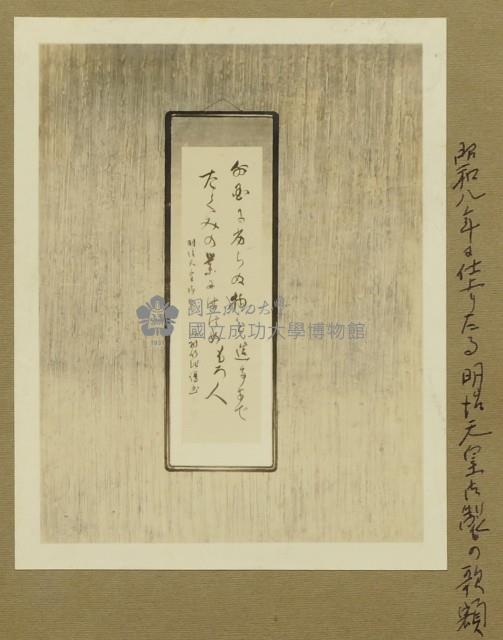 昭和八年に仕上りたる明治天皇御製の歌額
外国に劣らぬ物を造るまで
たくみの業にはけめもろ人
明治天皇御
謹書
國立成功大學
國立成功大學博物館
1931